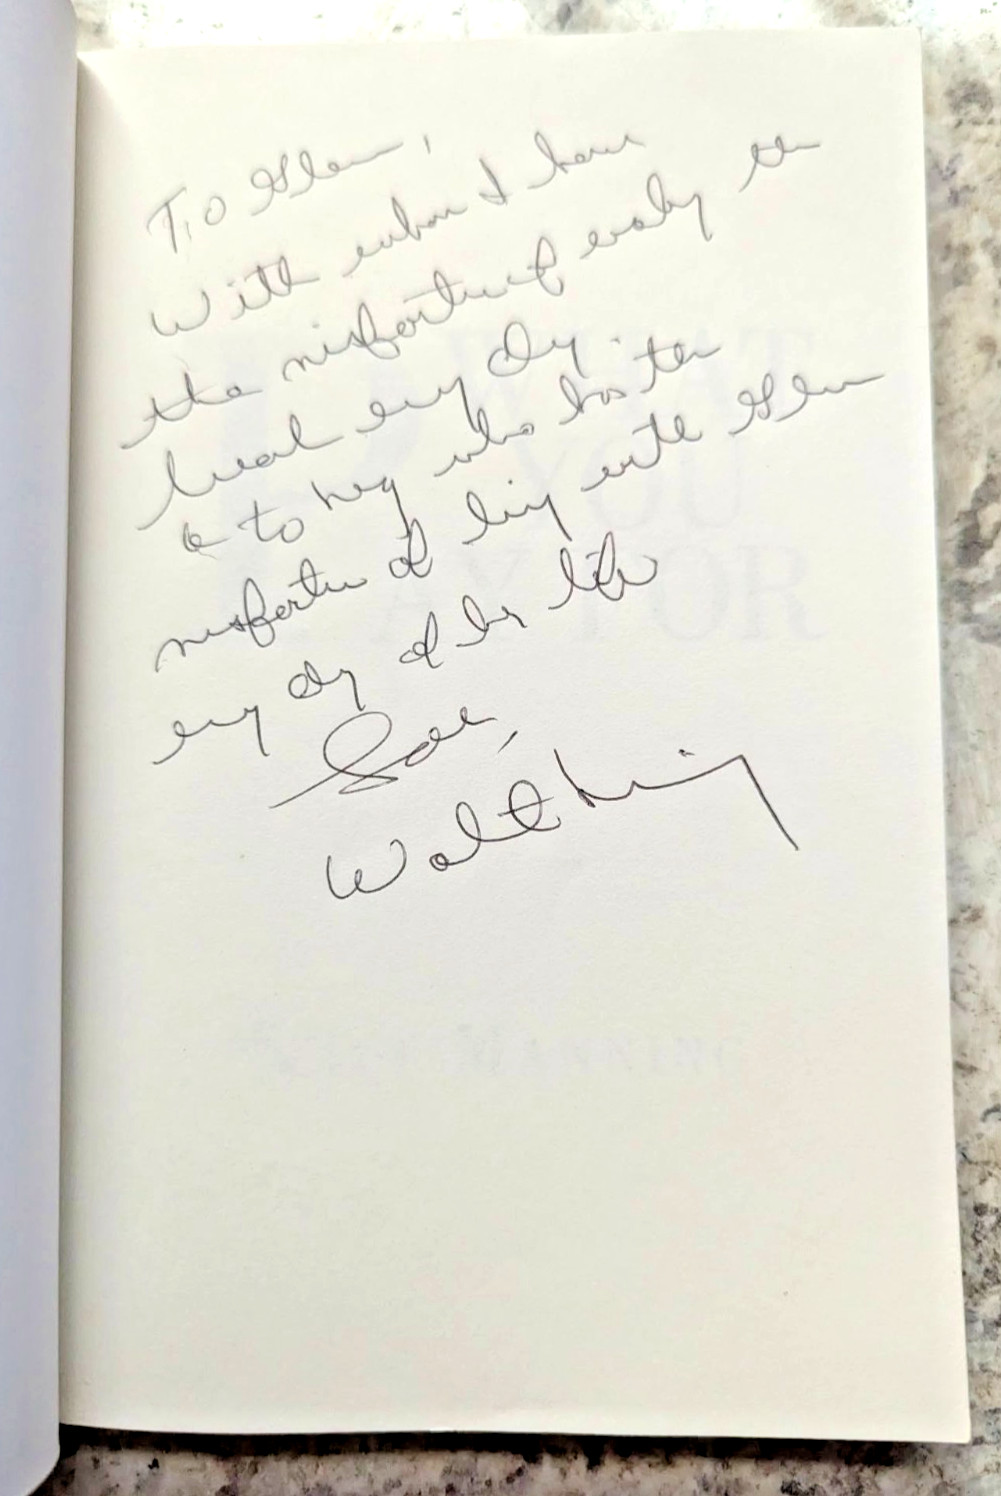 To Glenn,
With whom I have
the misfortune of eating the
lunch every day.
& to who has the
misfortune of living with Glenn
every day of her life
Walt
WHAT
YOU
PAY FOR
MANNING